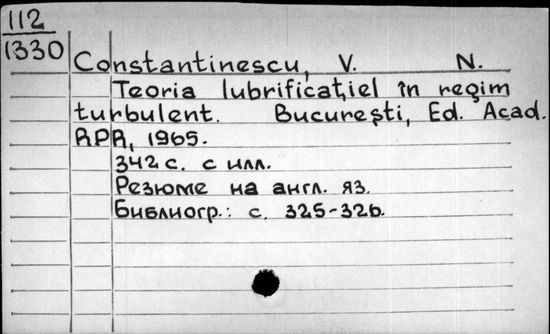 112
1330
Constantinescu, V. N.
Teoria lubrificaţiel în regim
turbulent. Bucureşti, Ed. Acad.
RPR, 1965.
342 с. с илл.
Резюме на англ. яз.
Библиогр.: с. 325-326.